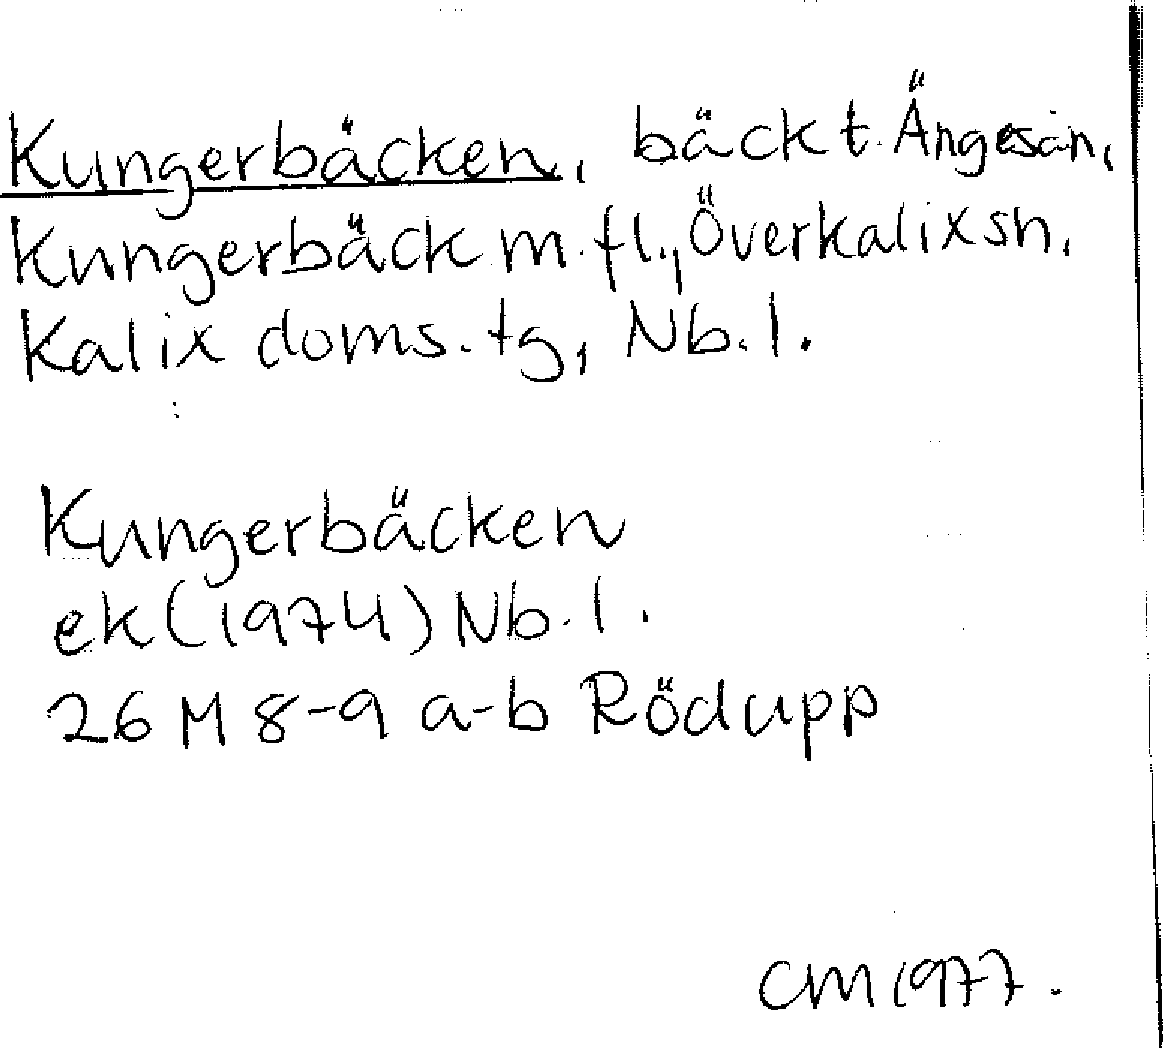 Kungerbäcken, bäck t. Ängesån,
Kungerbäck m.fl., Överkalix sn,
Kalix doms. tg, Nb. l.
Kungerbäcken
ek (1974) Nb. l.
26 M 8-9 a-b Rödupp
CM 1977.